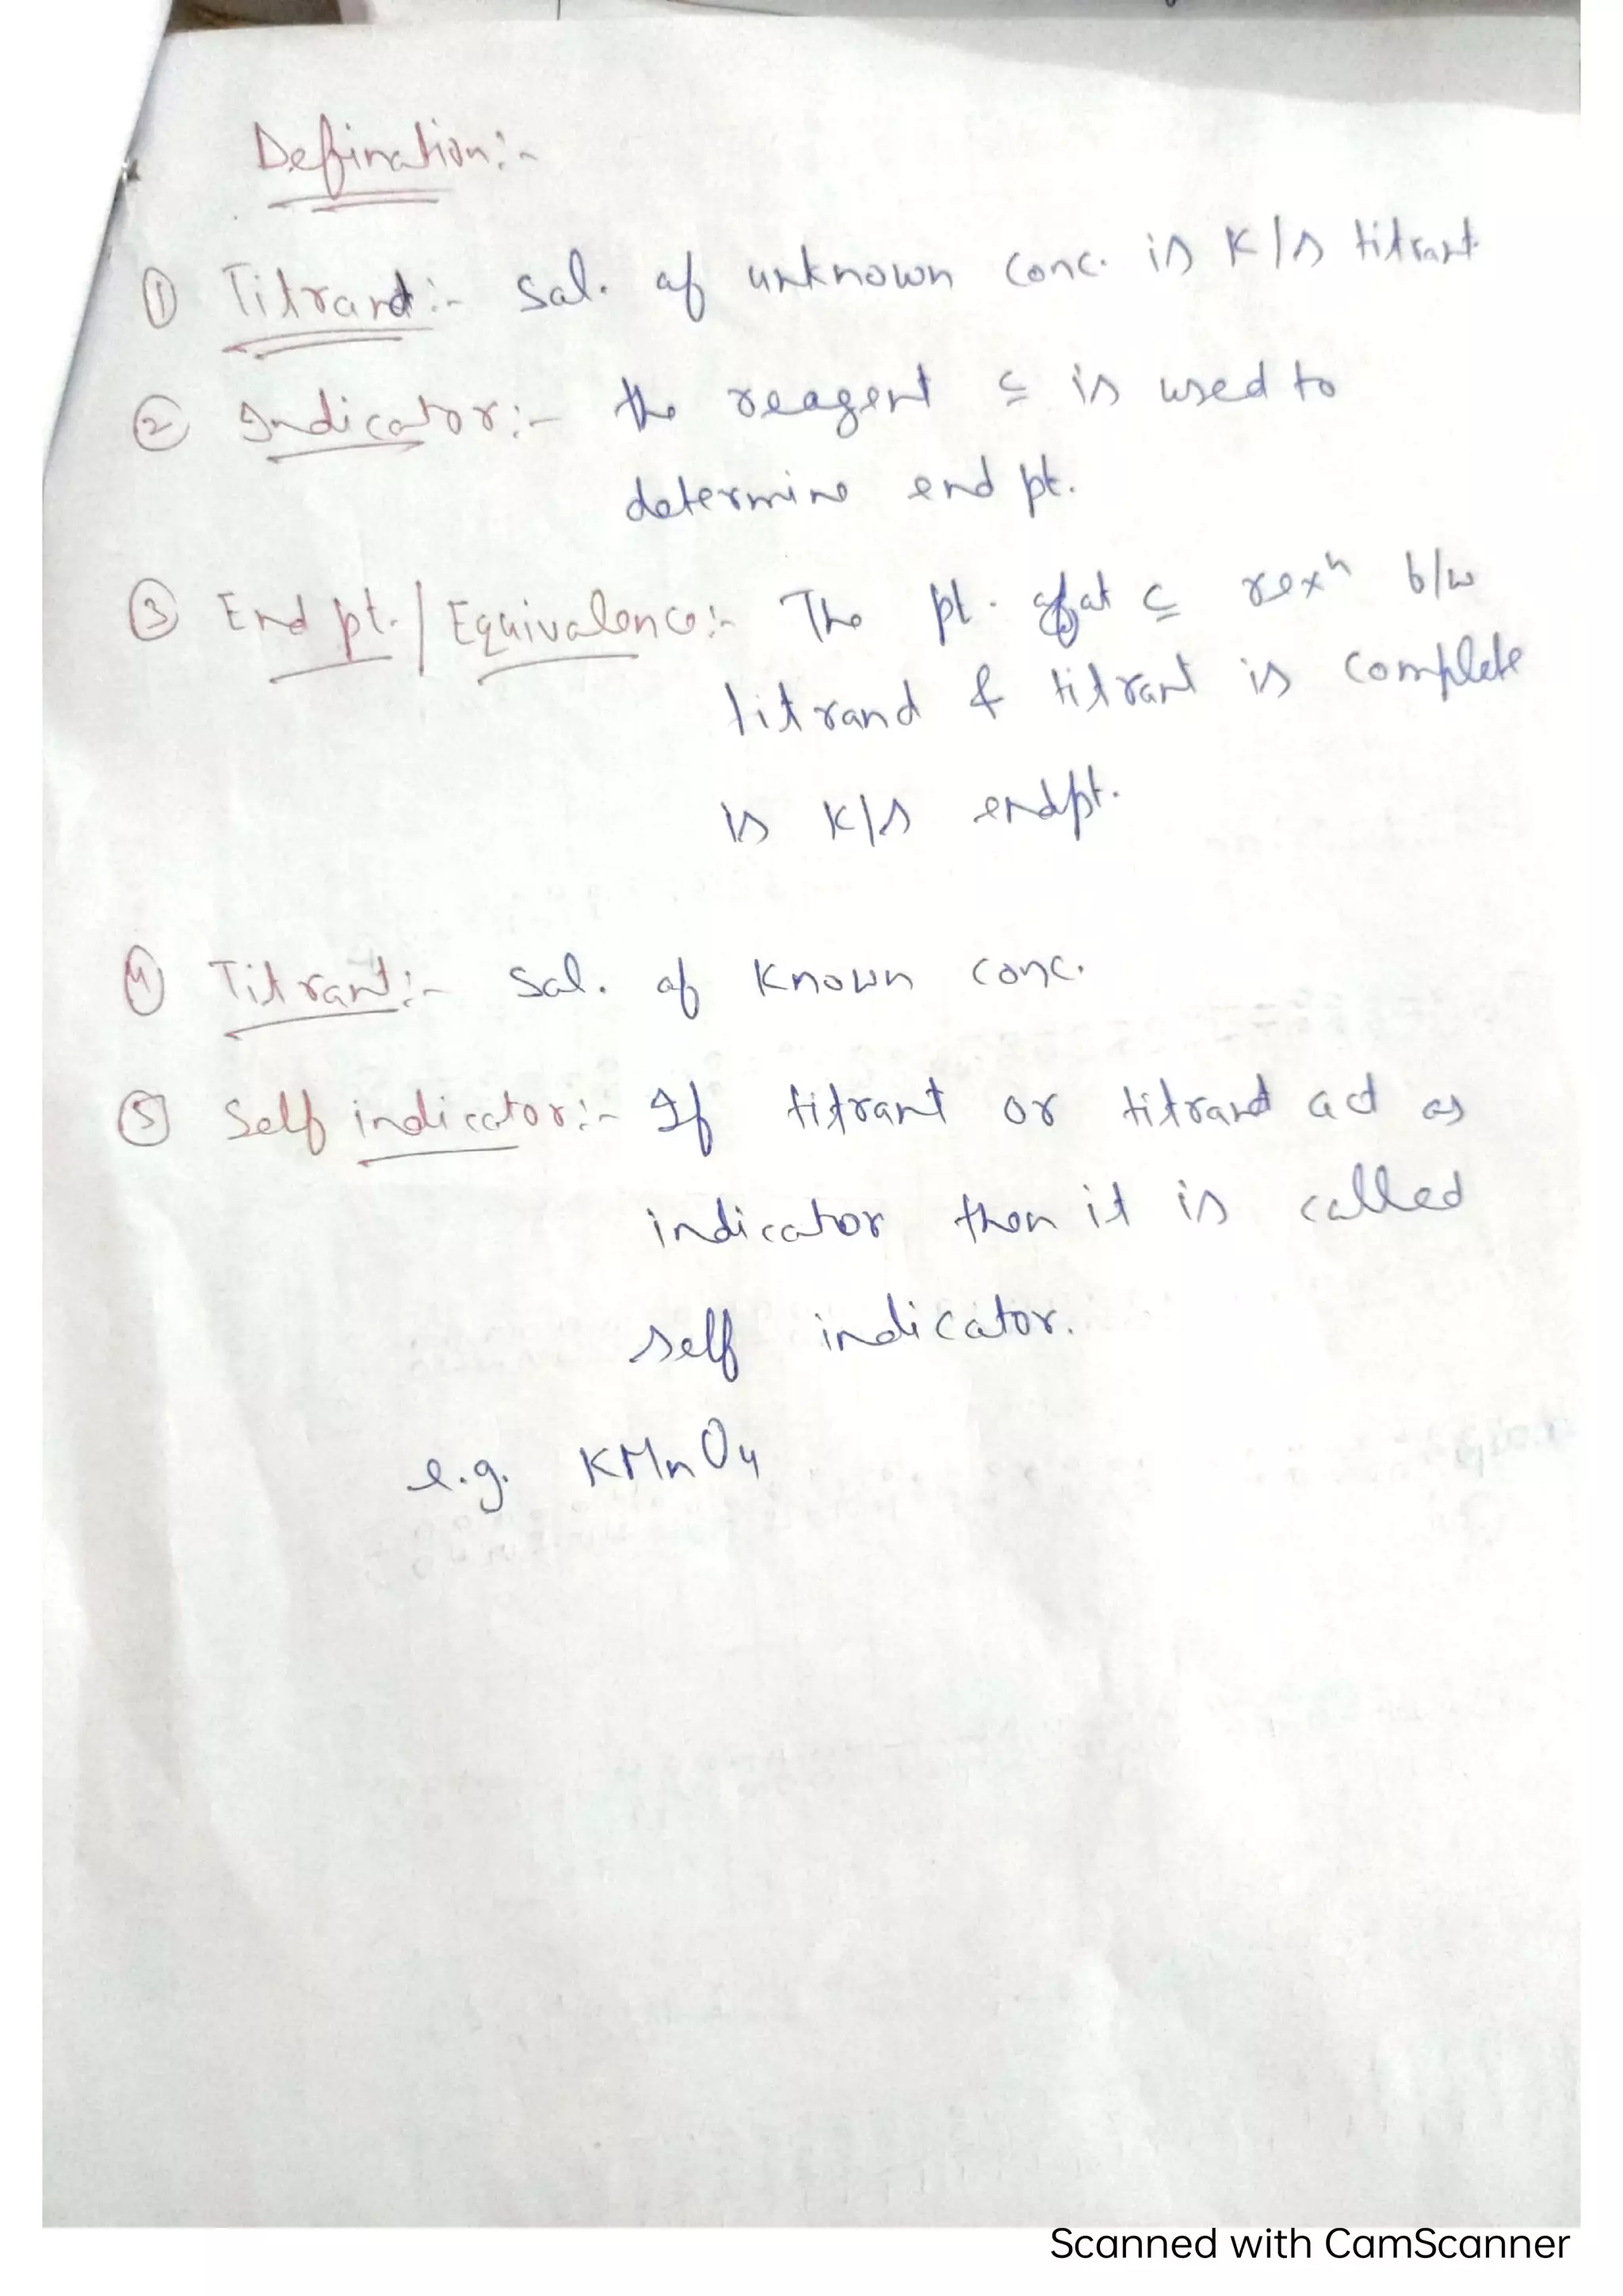 Defination:-
① Titrand:- Sol. of unknown conc. is K/s titrant
② Indicator:- the reagent c̲ is used to
determine end pt.
③ End pt./Equivalence:- The pt. at c̲ rexⁿ b/w
titrand & titrant is complete
is K/s endpt.
④ Titrant:- Sol. of Known conc.
⑤ Self indicator:- If titrant or titrand act as
indicator then it is called
self indicator.
e.g. KMnO₄
Scanned with CamScanner